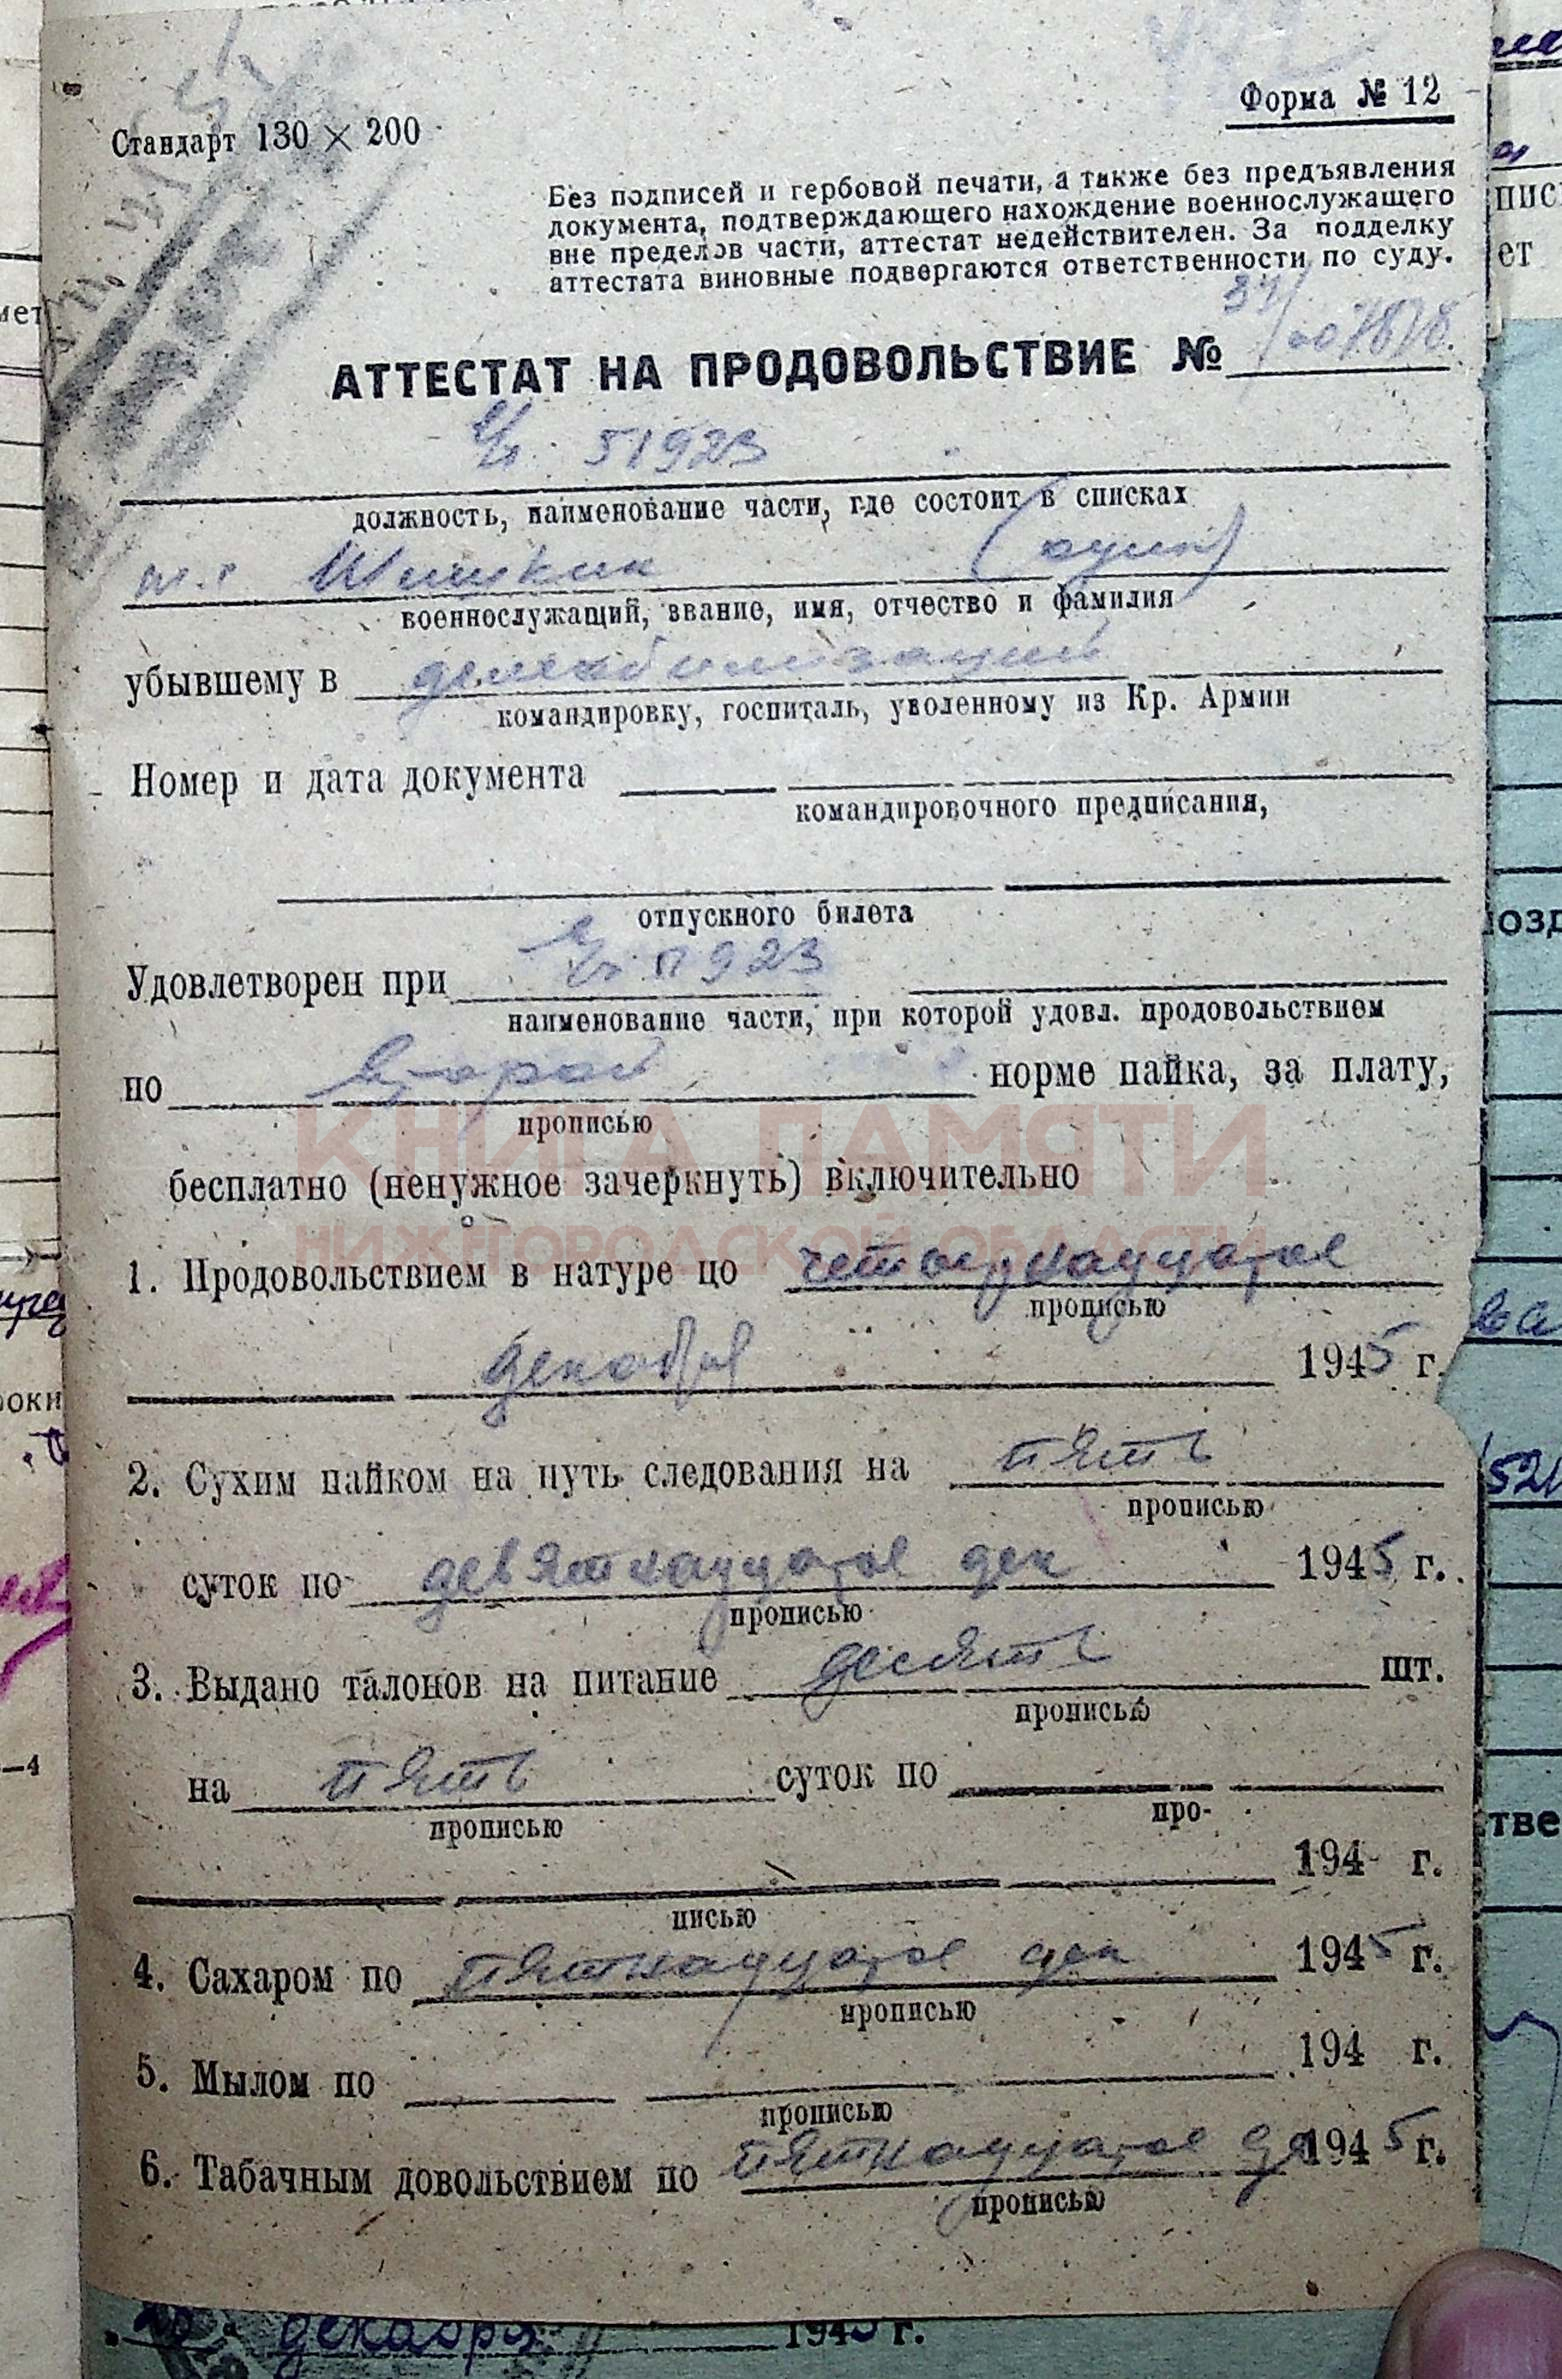 Форма № 12
Стандарт 130 × 200
Без подписей и гербовой печати, а также без предъявления
документа, подтверждающего нахождение военнослужащего
вне пределов части, аттестат недействителен. За подделку
аттестата виновные подвергаются ответственности по суду.
АТТЕСТАТ НА ПРОДОВОЛЬСТВИЕ №
в/ч 51923
должность, наименование части, где состоит в списках
(один)
военнослужащий, звание, имя, отчество и фамилия
убывшему в демобилизации
командировку, госпиталь, уволенному из Кр. Армии
Номер и дата документа
командировочного предписания,
отпускного билета
Удовлетворен при в/ч 51923
наименование части, при которой удовл. продовольствием
по второй норме пайка, за плату,
прописью
КНИГА ПАМЯТИ
бесплатно (ненужное зачеркнуть) включительно
НИЖЕГОРОДСКОЙ ОБЛАСТИ
1. Продовольствием в натуре по четырнадцатое
прописью
декабря 1945 г.
2. Сухим пайком на путь следования на пять
прописью
суток по девятнадцатое дек 1945 г.
прописью
3. Выдано талонов на питание десять шт.
прописью
на пять суток по
прописью про-
194 г.
писью
4. Сахаром по пятнадцатое дек 1945 г.
прописью
5. Мылом по 194 г.
прописью
6. Табачным довольствием по пятнадцатое де 1945 г.
прописью
декабря 1945 г.